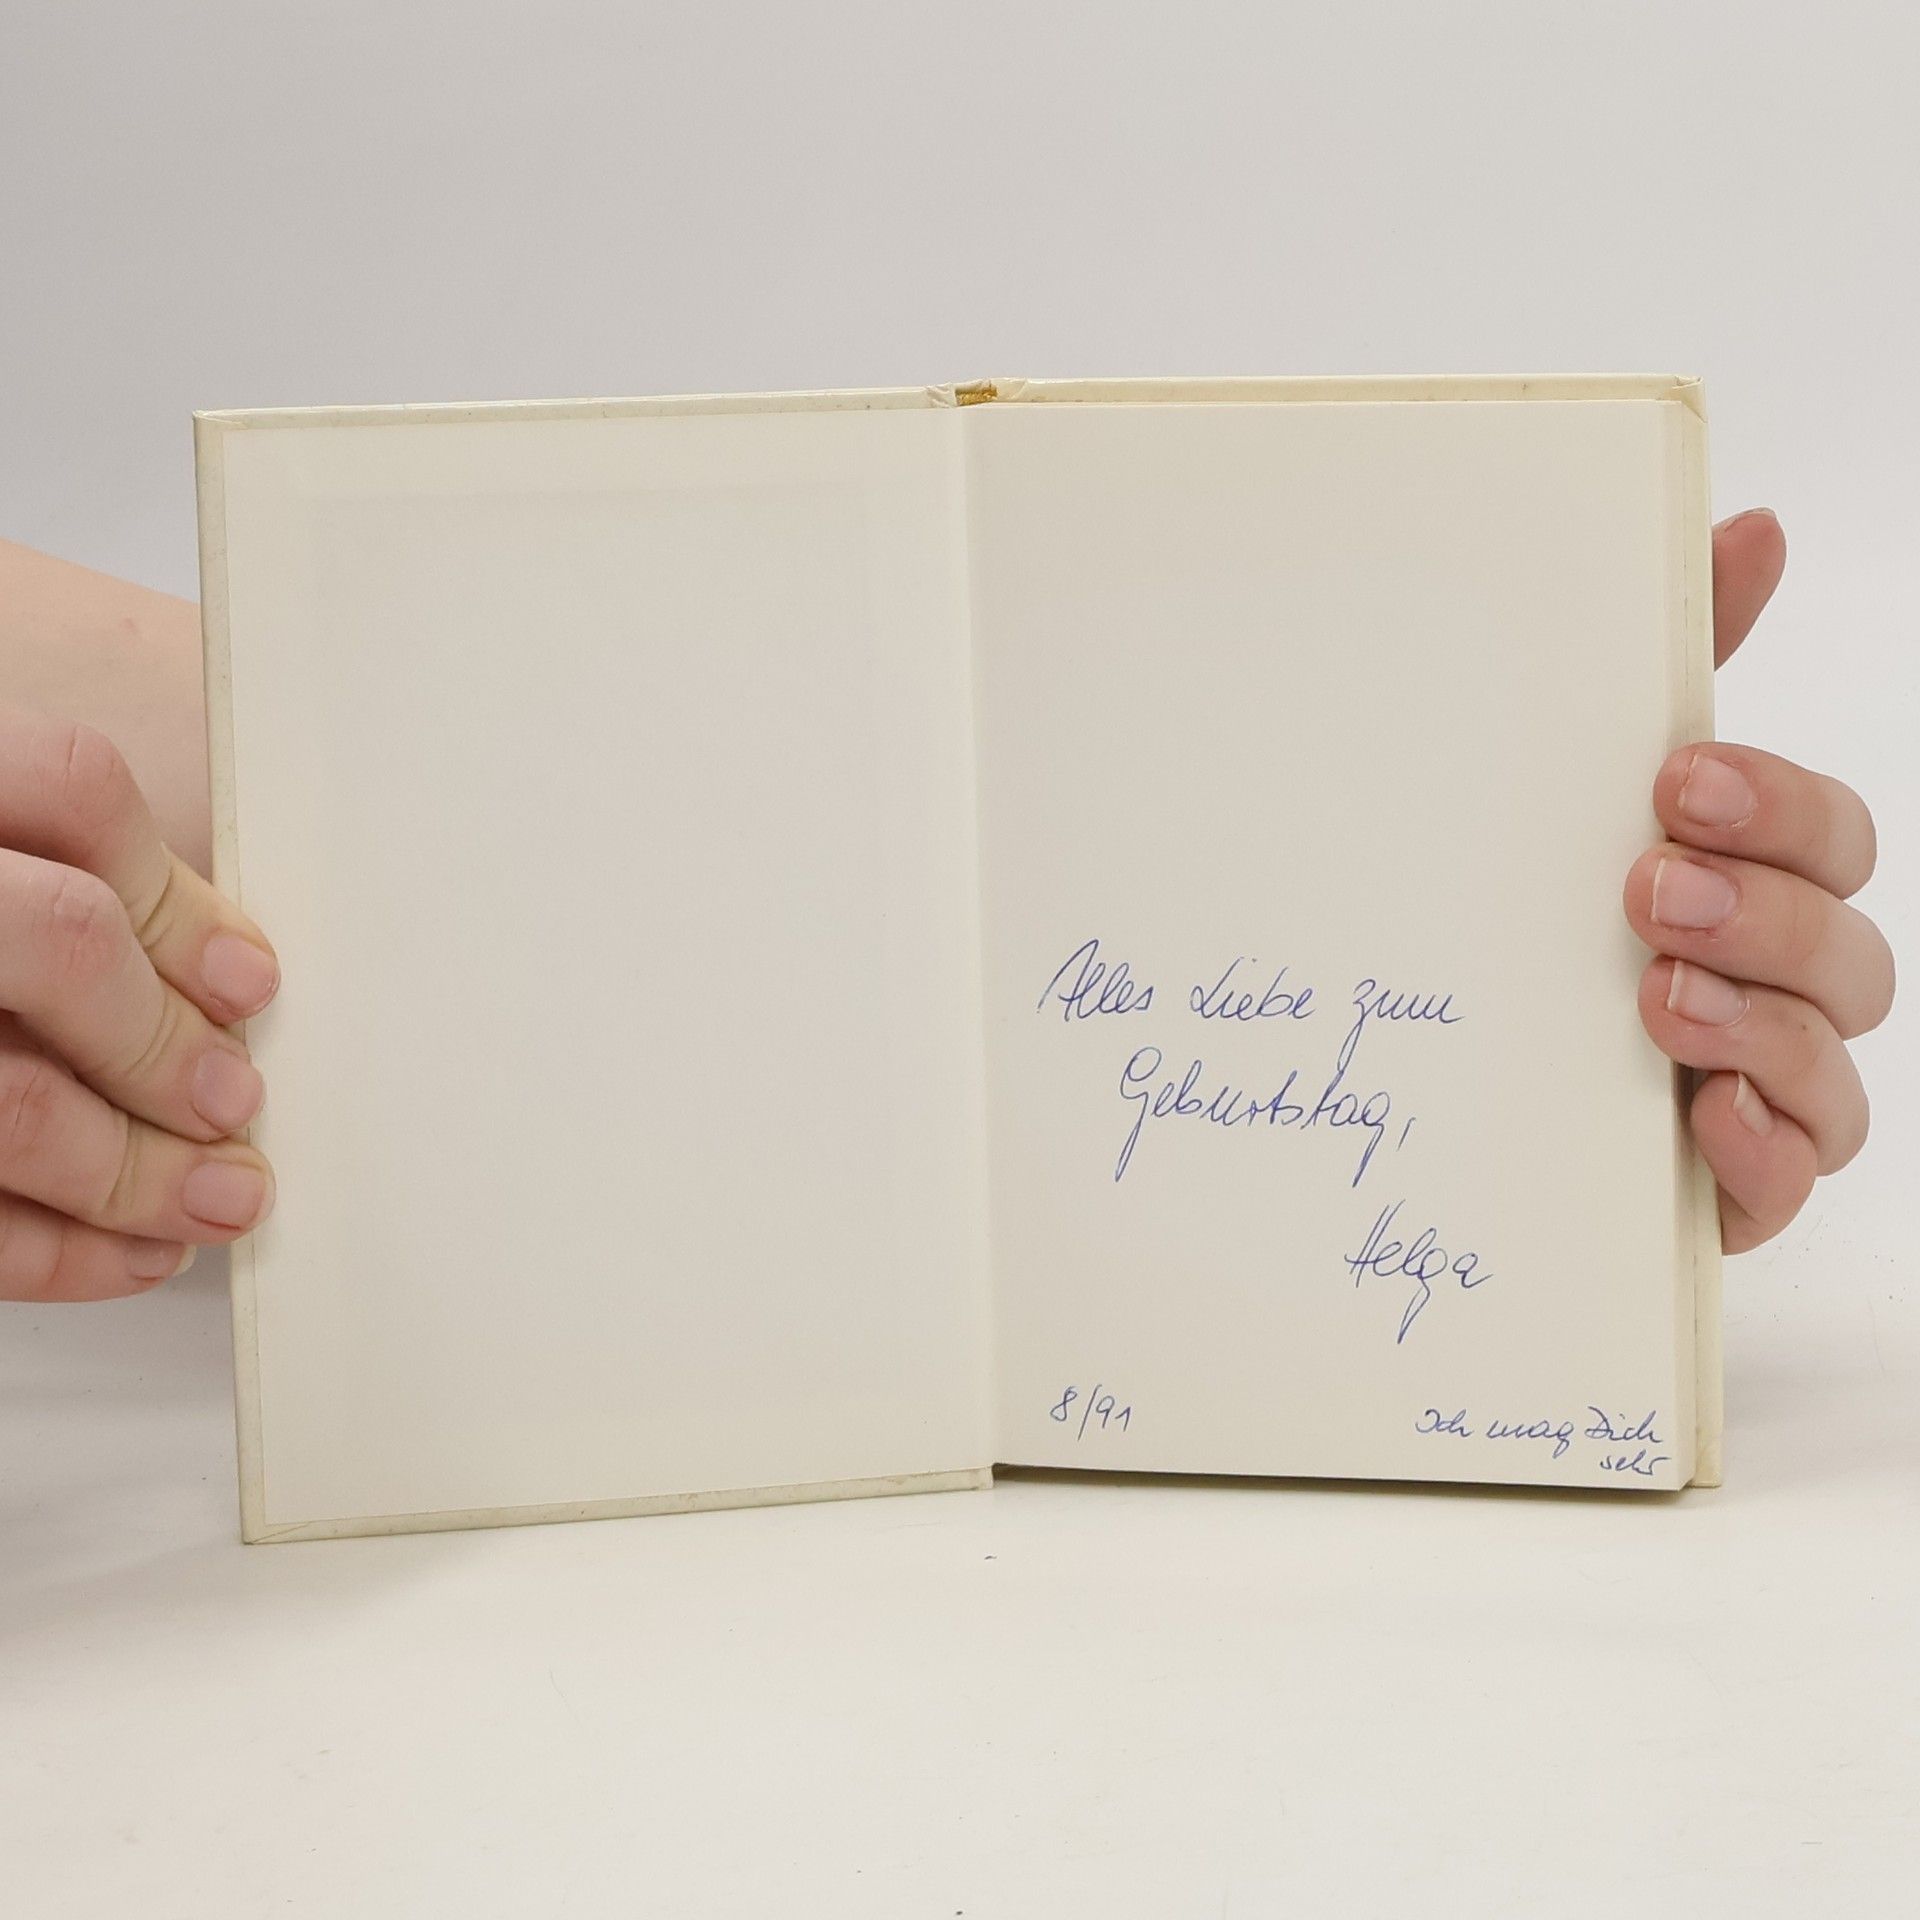 Alles Liebe zum
Geburtstag,
Helga
8/91
Ich mag Dich
sehr